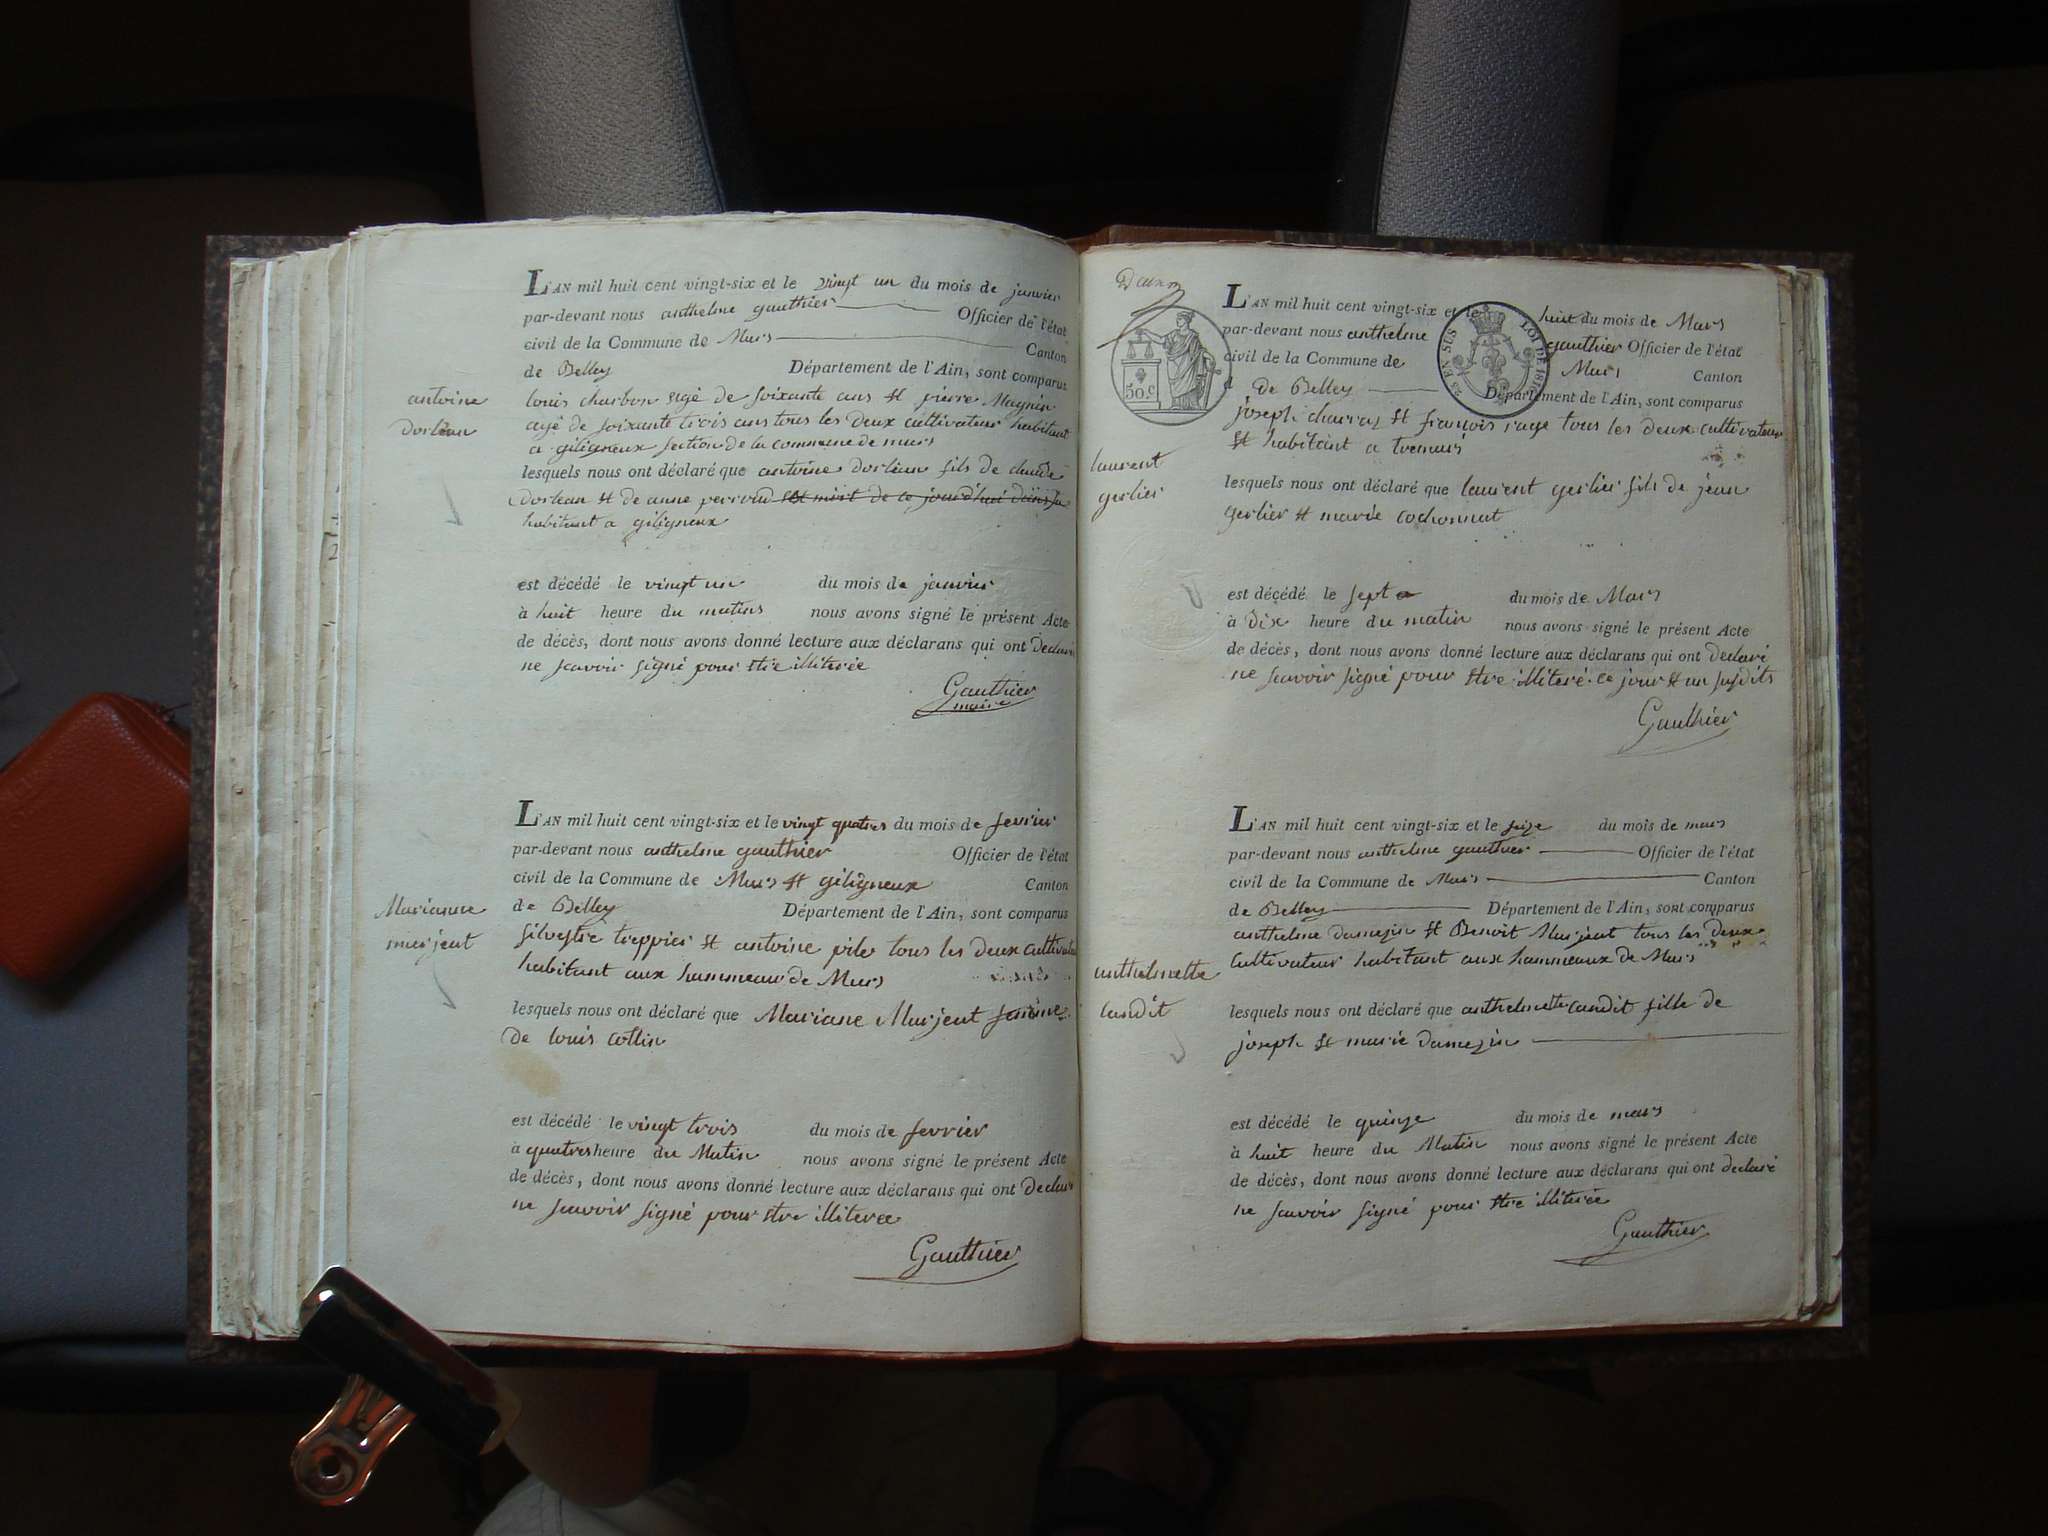 L'AN mil huit cent vingt-six et le vingt un du mois de janvier
par-devant nous anthelme gauthier Officier de l'état
civil de la Commune de Murs Canton
de Belley Département de l'Ain, sont comparus
antoine
dorlean
louis charbon age de soixante ans et pierre Magnin
agé de soixante trois ans tous les deux cultivateur habitant
a giligneux section de la commune de murs
lesquels nous ont déclaré que antoine dorlean fils de claude
dorlean et de anne perroud est mort de ce jourd'hui dans sa
habitant a giligneux
est décédé le vingt un du mois de janvier
à huit heure du matins nous avons signé le présent Acte
de décès, dont nous avons donné lecture aux déclarans qui ont declaré
ne scavoir signé pour etre illiterée
Gauthier
maire
L'AN mil huit cent vingt-six et le vingt quatres du mois de fevrier
par-devant nous anthelme gauthier Officier de l'état
civil de la Commune de Murs et giligneux Canton
de Belley Département de l'Ain, sont comparus
Marianne
murjeut
silvestre treppier et antoine pile tous les deux cultivateur
habitant aux hammeaux de Murs
lesquels nous ont déclaré que Mariane Murjeut femme
de louis collin
est décédé le vingt trois du mois de fevrier
à quatres heure du Matin nous avons signé le présent Acte
de décès, dont nous avons donné lecture aux déclarans qui ont declaré
ne scavoir signé pour etre illiteree
Gauthier
50.C
EN SUS LOI DE 1816
L'AN mil huit cent vingt-six et le huit du mois de Mars
par-devant nous anthelme gauthier Officier de l'état
civil de la Commune de Murs Canton
d de Belley Département de l'Ain, sont comparus
joseph charray et françois sage tous les deux cultivateur
et habitant a tremurs
laurent
gerlier
lesquels nous ont déclaré que laurent gerlier fils de jean
gerlier et marie cochonnat
est décédé le sept du mois de Mars
à dix heure du matin nous avons signé le présent Acte
de décès, dont nous avons donné lecture aux déclarans qui ont declaré
ne scavoir signé pour etre illiteré ce jour et an susdits
Gauthier
L'AN mil huit cent vingt-six et le seize du mois de mars
par-devant nous anthelme gauthier Officier de l'état
civil de la Commune de Murs Canton
de Belley Département de l'Ain, sont comparus
anthelme damezin et Benoit Murjeut tous les deux
cultivateur habitant aux hammeaux de Murs
anthelmette
landit
lesquels nous ont déclaré que anthelmette landit fille de
joseph et marie damezin
est décédé le quinze du mois de mars
à huit heure du Matin nous avons signé le présent Acte
de décès, dont nous avons donné lecture aux déclarans qui ont declaré
ne scavoir signé pour etre illiterée
Gauthier